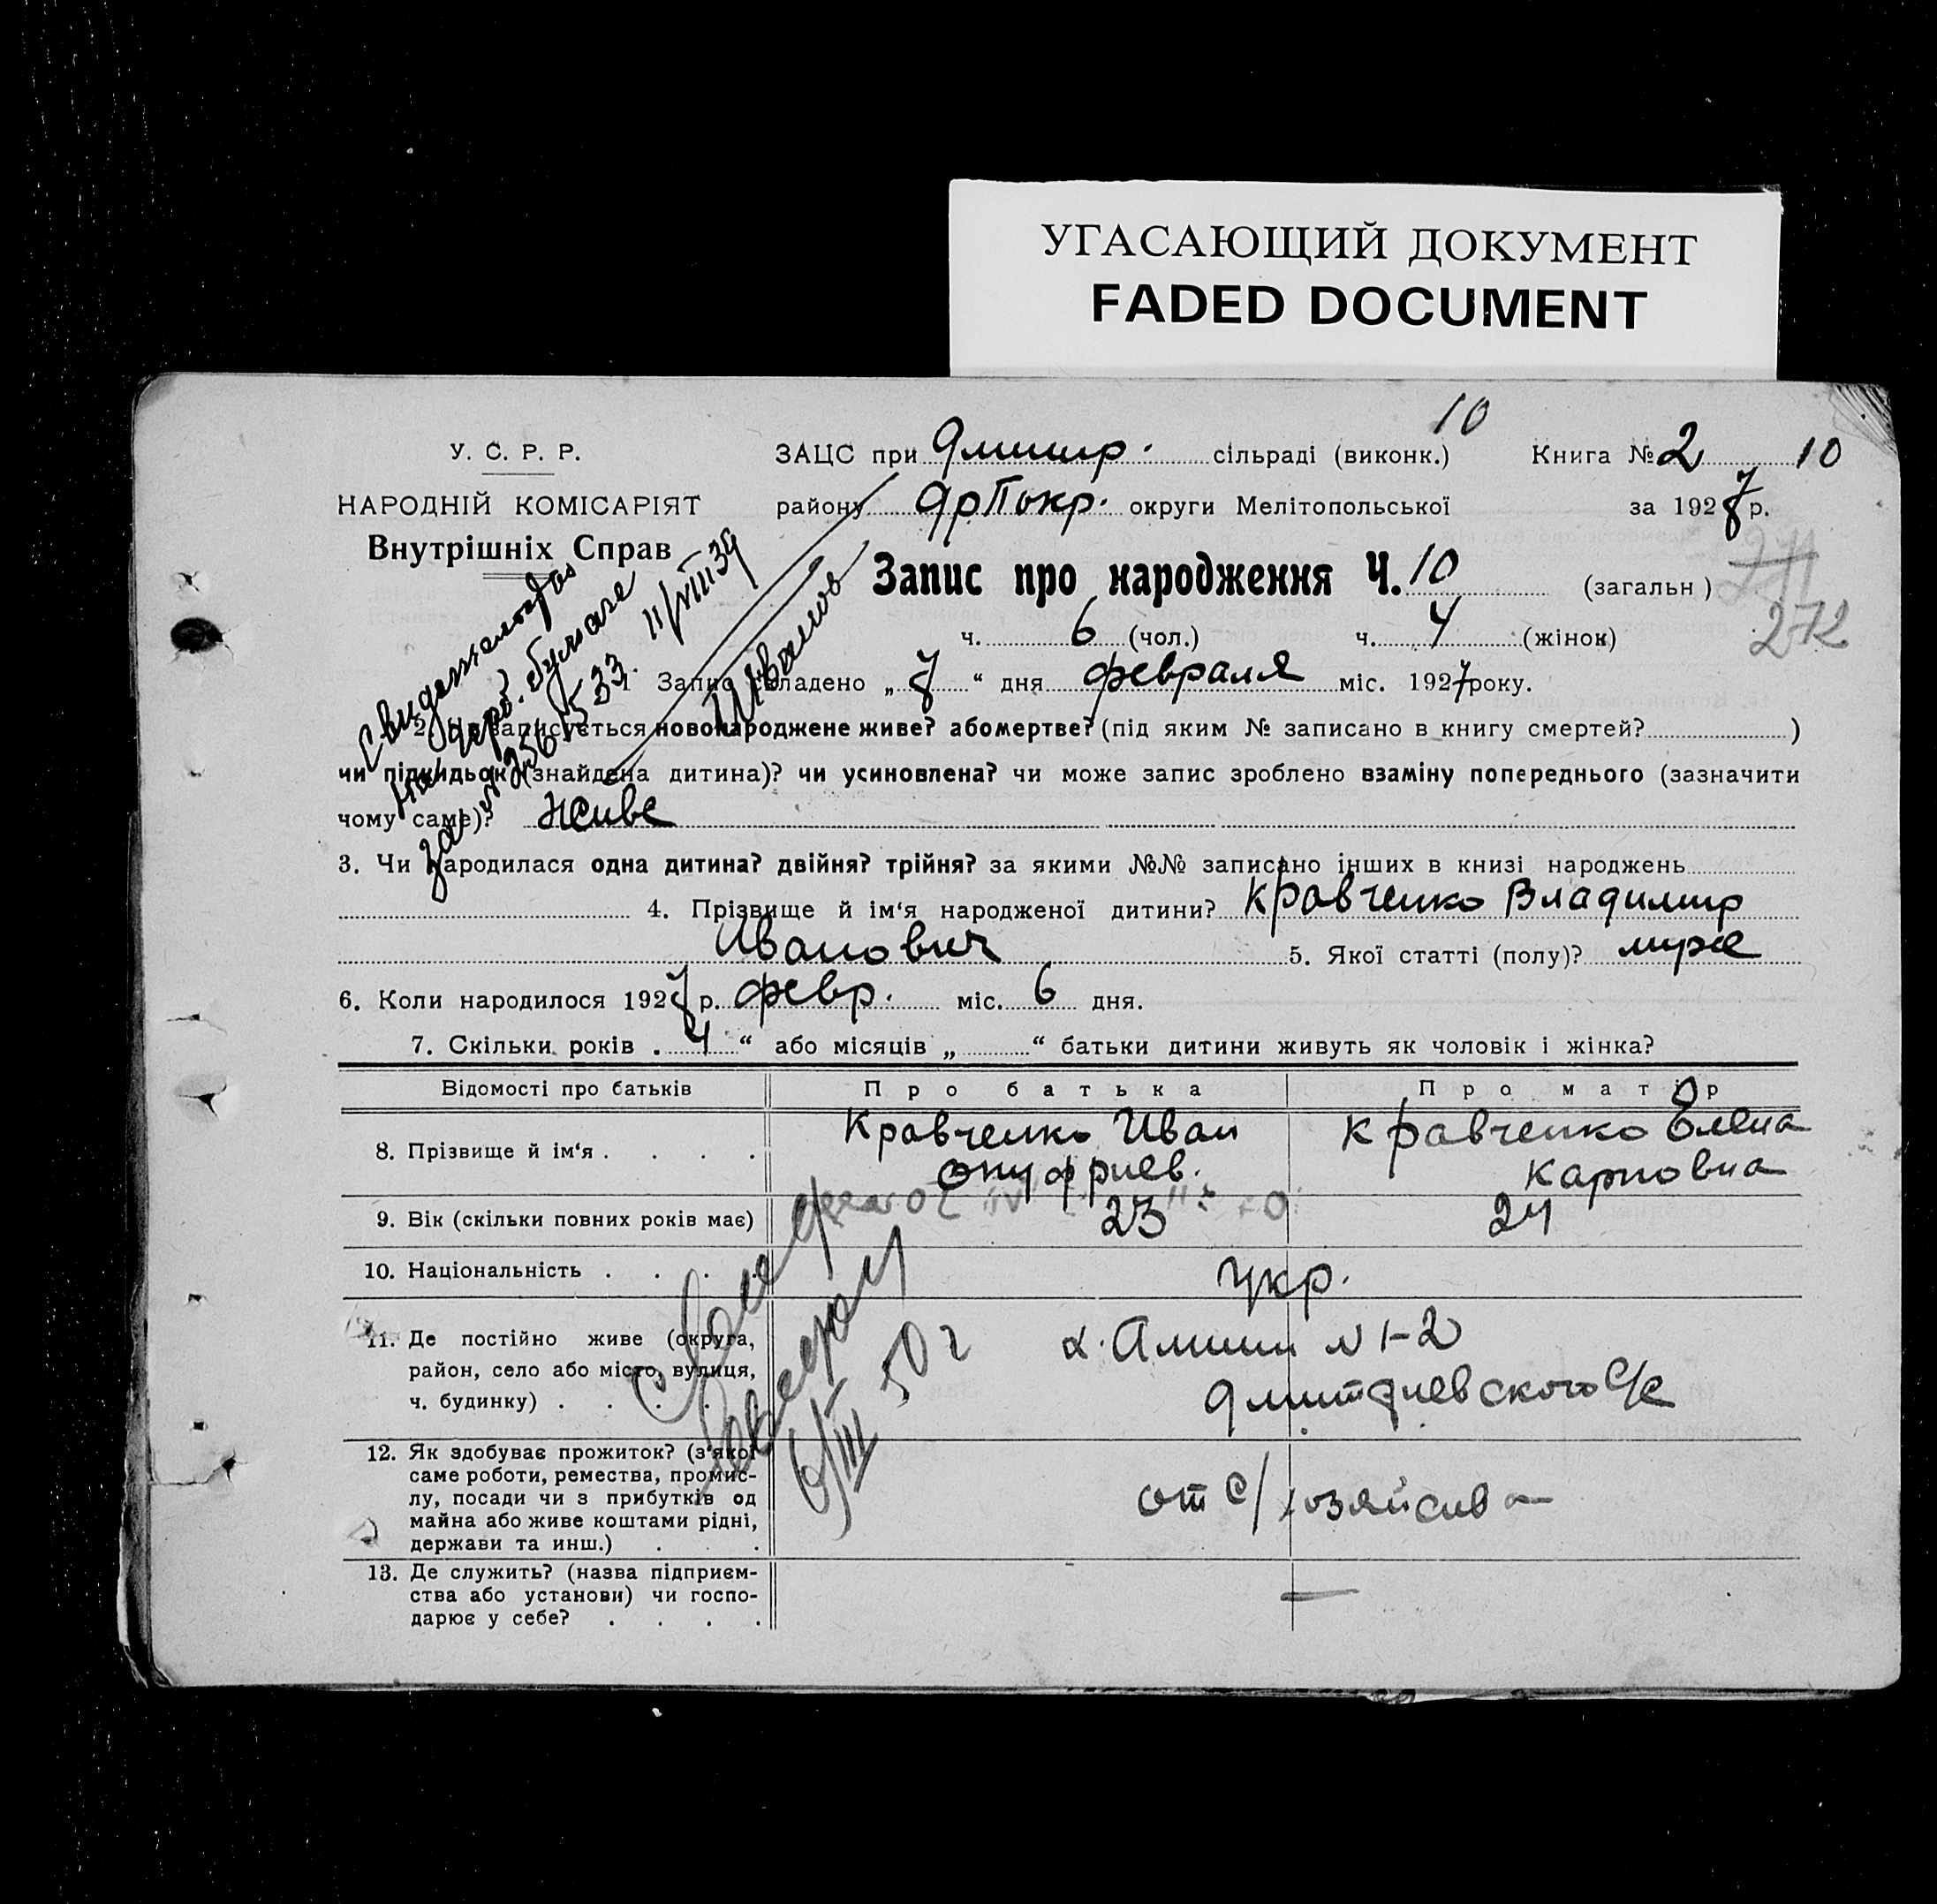 УГАСАЮЩИЙ ДОКУМЕНТ
FADED DOCUMENT
10
У. С. Р. Р.
ЗАЦС при Дмитр. сільраді (виконк.) Книга № 2 10
НАРОДНІЙ КОМІСАРІЯТ
району дрПокр. округи Мелітопольської за 1927 р.
Внутрішніх Справ
Запис про народження Ч. 10 (загальн)
271
272
ч. 6 (чол.) ч. 4 (жінок)
1 Запис складено „7“ дня февраля міс. 1927 року.
2. Чи записується новонароджене живе? або мертве? (під яким № записано в книгу смертей? )
чи підкидьок (знайдена дитина)? чи усиновлена? чи може запис зроблено взаміну попереднього (зазначити
чому саме)? живе
3. Чи народилася одна дитина? двійня? трійня? за якими №№ записано інших в книзі народжень
4. Прізвище й ім‘я народженої дитини? Кравченко Владимир
Иванович 5. Якої статті (полу)? муже
6. Коли народилося 1927 р. февр. міс. 6 дня.
7. Скільки років . 4 “ або місяців „ “ батьки дитини живуть як чоловік і жінка?
Відомості про батьків Про батька Про матір
8. Прізвище й ім‘я . . . . Кравченко Иван Онуфриев. Кравченко Елена Карповна
9. Вік (скільки повних років має) 23 24
10. Національність . . . . Укр.
11. Де постійно живе (округа,
район, село або місто, вулиця,
ч. будинку) . . . .
N 1-2
Дмитриевского с/с
12. Як здобуває прожиток? (з‘якої
саме роботи, ремества, промис-
лу, посади чи з прибутків од
майна або живе коштами рідні,
держави та инш.) . . .
от с/хозяйства
13. Де служить? (назва підприєм-
ства або установи) чи госпо-
дарює у себе? . . . .
—
на герб. бумаге
за №
11/VIII 39
Иванов
6/III 50 г